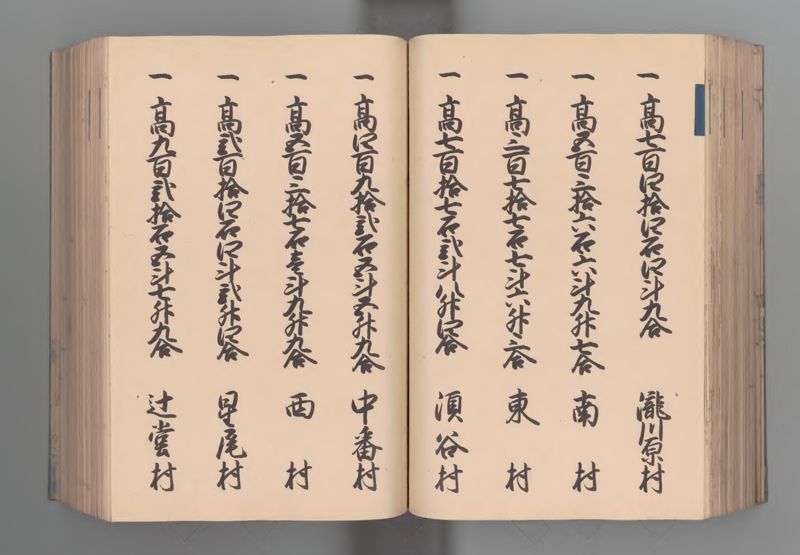 一 高七百四拾四石四斗九合 瀧川原村
一 高五百三拾六石六斗九升七合 南村
一 高三百七拾七石七斗六升三合 東村
一 高七百拾七石弐斗八升四合 須谷村
一 高四百九拾弐石五斗五升九合 中番村
一 高五百三拾七石壱斗九升九合 西村
一 高弐百拾四石四斗弐升四合 星尾村
一 高九百弐拾石五斗七升九合 辻堂村